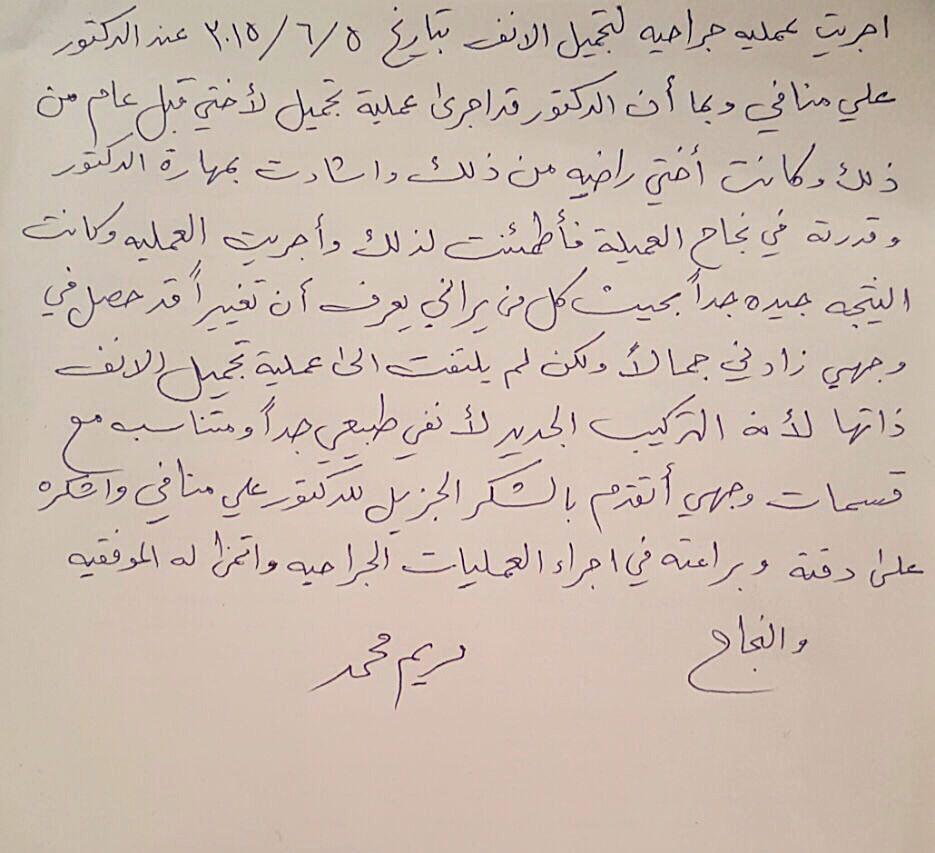 اجريت عمليه جراحيه لتجميل الانف بتاريخ ٥/٦/٢٠١٥ عند الدكتور
علي منافي وبما أن الدكتور قد اجرى عملية تجميل لأختي قبل عام من
ذلك وكانت أختي راضيه من ذلك واشادت بمهارة الدكتور
وقدرتة في نجاح العميلة فأطمئنت لذلك وأجريت العمليه وكانت
النتيجه جيده جداً بحيث كل من يراني يعرف أن تغييراً قد حصل في
وجهي زادني جمالاً ولكن لم يلتفت الى عملية تجميل الانف
ذاتها لأنه التركيب الجديد لأنفي طبيعي جداً ومتناسب مع
قسمات وجهي أتقدم بالشكر الجزيل للدكتور علي منافي واشكره
على دقتة وبراعته في اجراء العمليات الجراحيه واتمنى له الموفقيه
والنجاح
مريم محمد